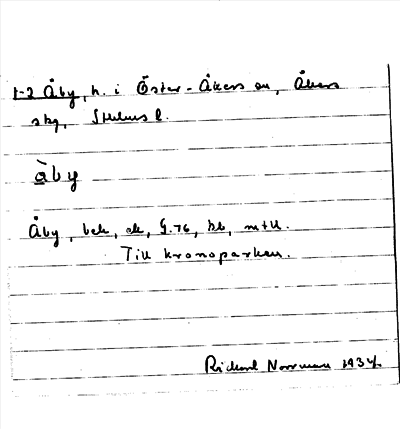 1-2 Åby, h. i Öster-Åkers sn, Åkers
skg, Sthlms l.
åby
Åby, bek, ek, G. 76, bb, m+u.
Till kronoparken.
Richard Norrman 1934.